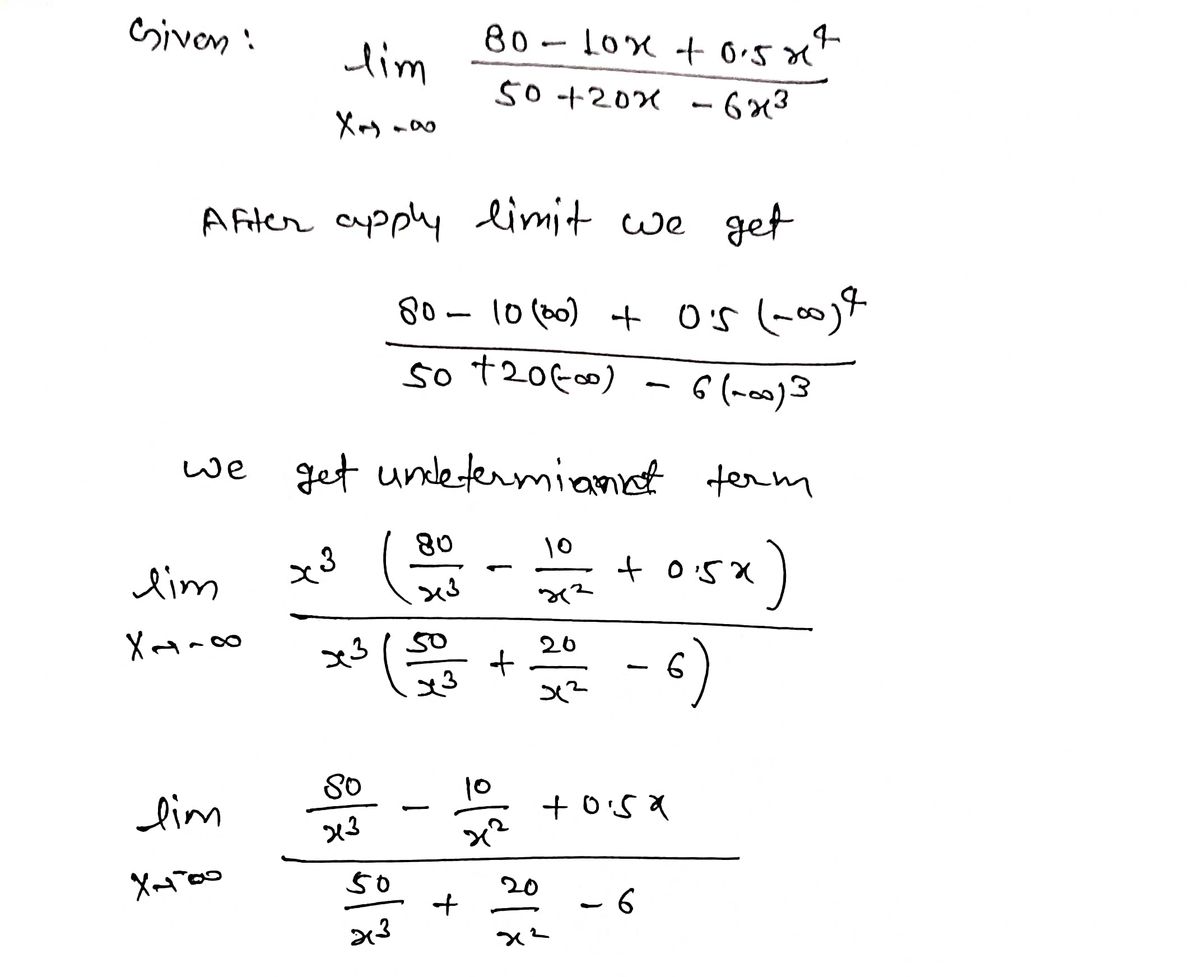 Given: lim x→-∞ (80 - 10x + 0.5x⁴) / (50 + 20x - 6x³)
After apply limit we get
(80 - 10(∞) + 0.5(-∞)⁴) / (50 + 20(-∞) - 6(-∞)³)
we get term
lim x→-∞ x³(80/x³ - 10/x² + 0.5x) / x³(50/x³ + 20/x² - 6)
lim x→-∞ (80/x³ - 10/x² + 0.5x) / (50/x³ + 20/x² - 6)